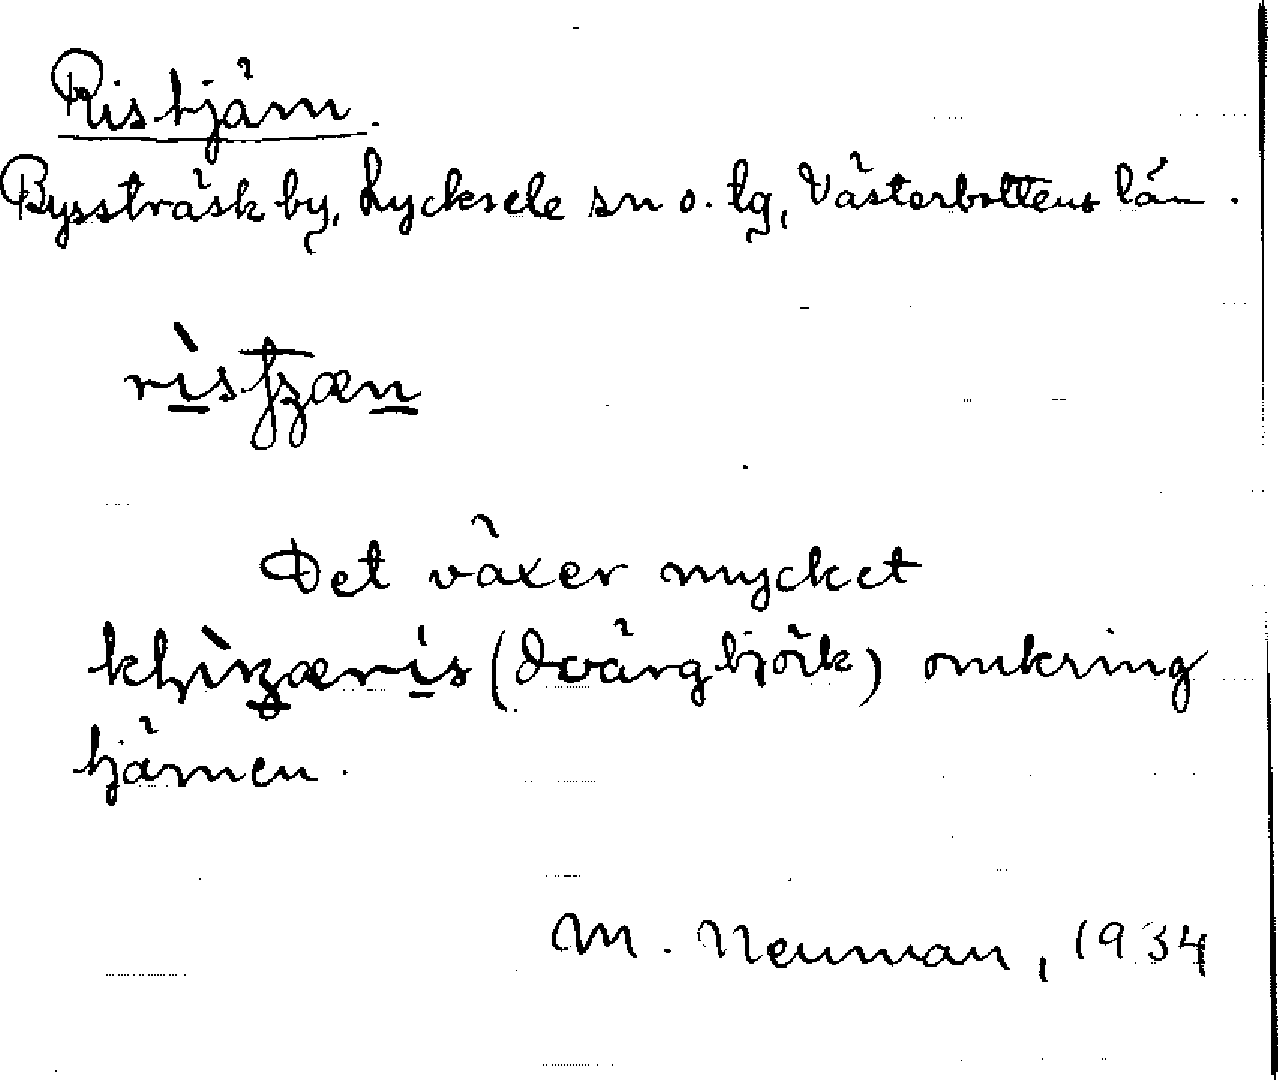 Ristjärn.
Byssträsk by, Lycksele sn o. lg, Västerbottens län.
Det växer mycket
(dvärgbjörk) omkring
tjärnen.
M. Neuman, 1934